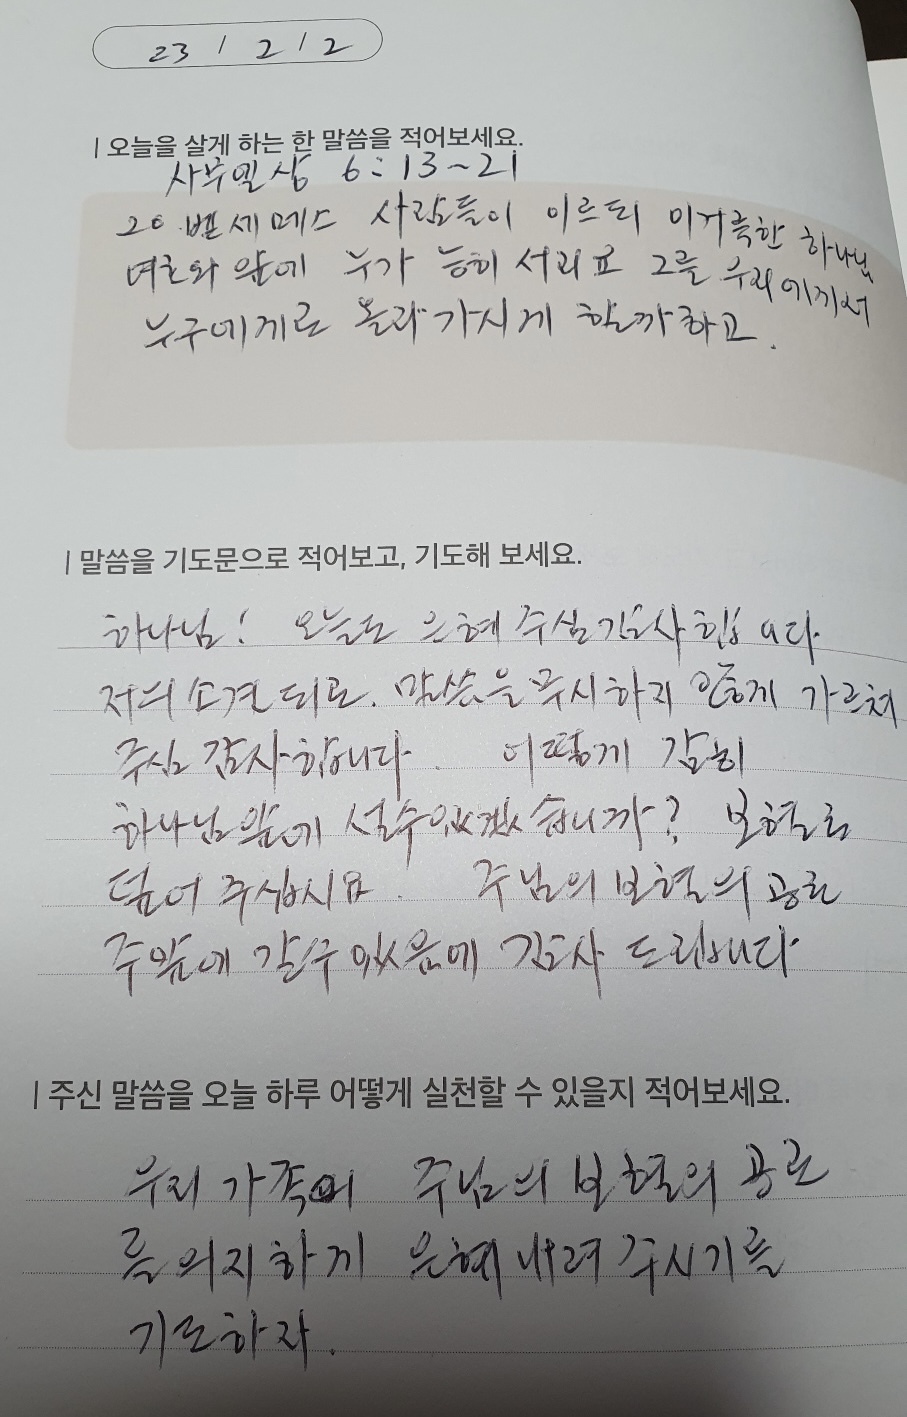 23 / 2 / 2
| 오늘을 살게 하는 한 말씀을 적어보세요.
사무엘상 6:13~21
20. 벧세메스 사람들이 이르되 이거룩한 하나님
여호와 앞에 누가 능히 서리요 그를 우리에게서
누구에게로 올라가시게 할까하고.
| 말씀을 기도문으로 적어보고, 기도해 보세요.
하나님! 오늘도 은혜 주심감사합니다
저의 소견되로. 말씀을무시하지 않게 가르쳐
주심 감사합니다. 어떻게 감히
하나님앞에 설수있겠습니까? 보혈로
덮어 주십시요. 주님의 보혈의 공로
주앞에 갈수있음에 감사 드립니다
| 주신 말씀을 오늘 하루 어떻게 실천할 수 있을지 적어보세요.
우리 가족이 주님의 보혈의 공로
를 의지하게 은혜 내려 주시기를
기도하자.